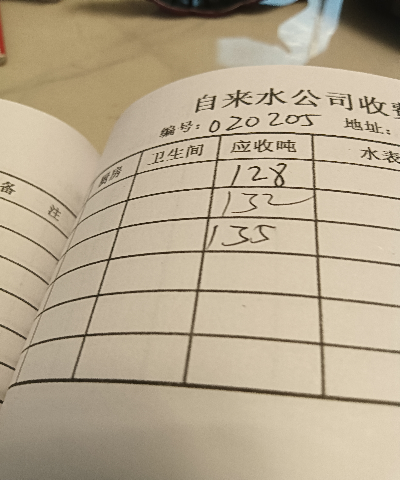 自来水公司收费
编号: 020205 地址:
备 注
厨房 卫生间 应收吨 水表
128
132
135